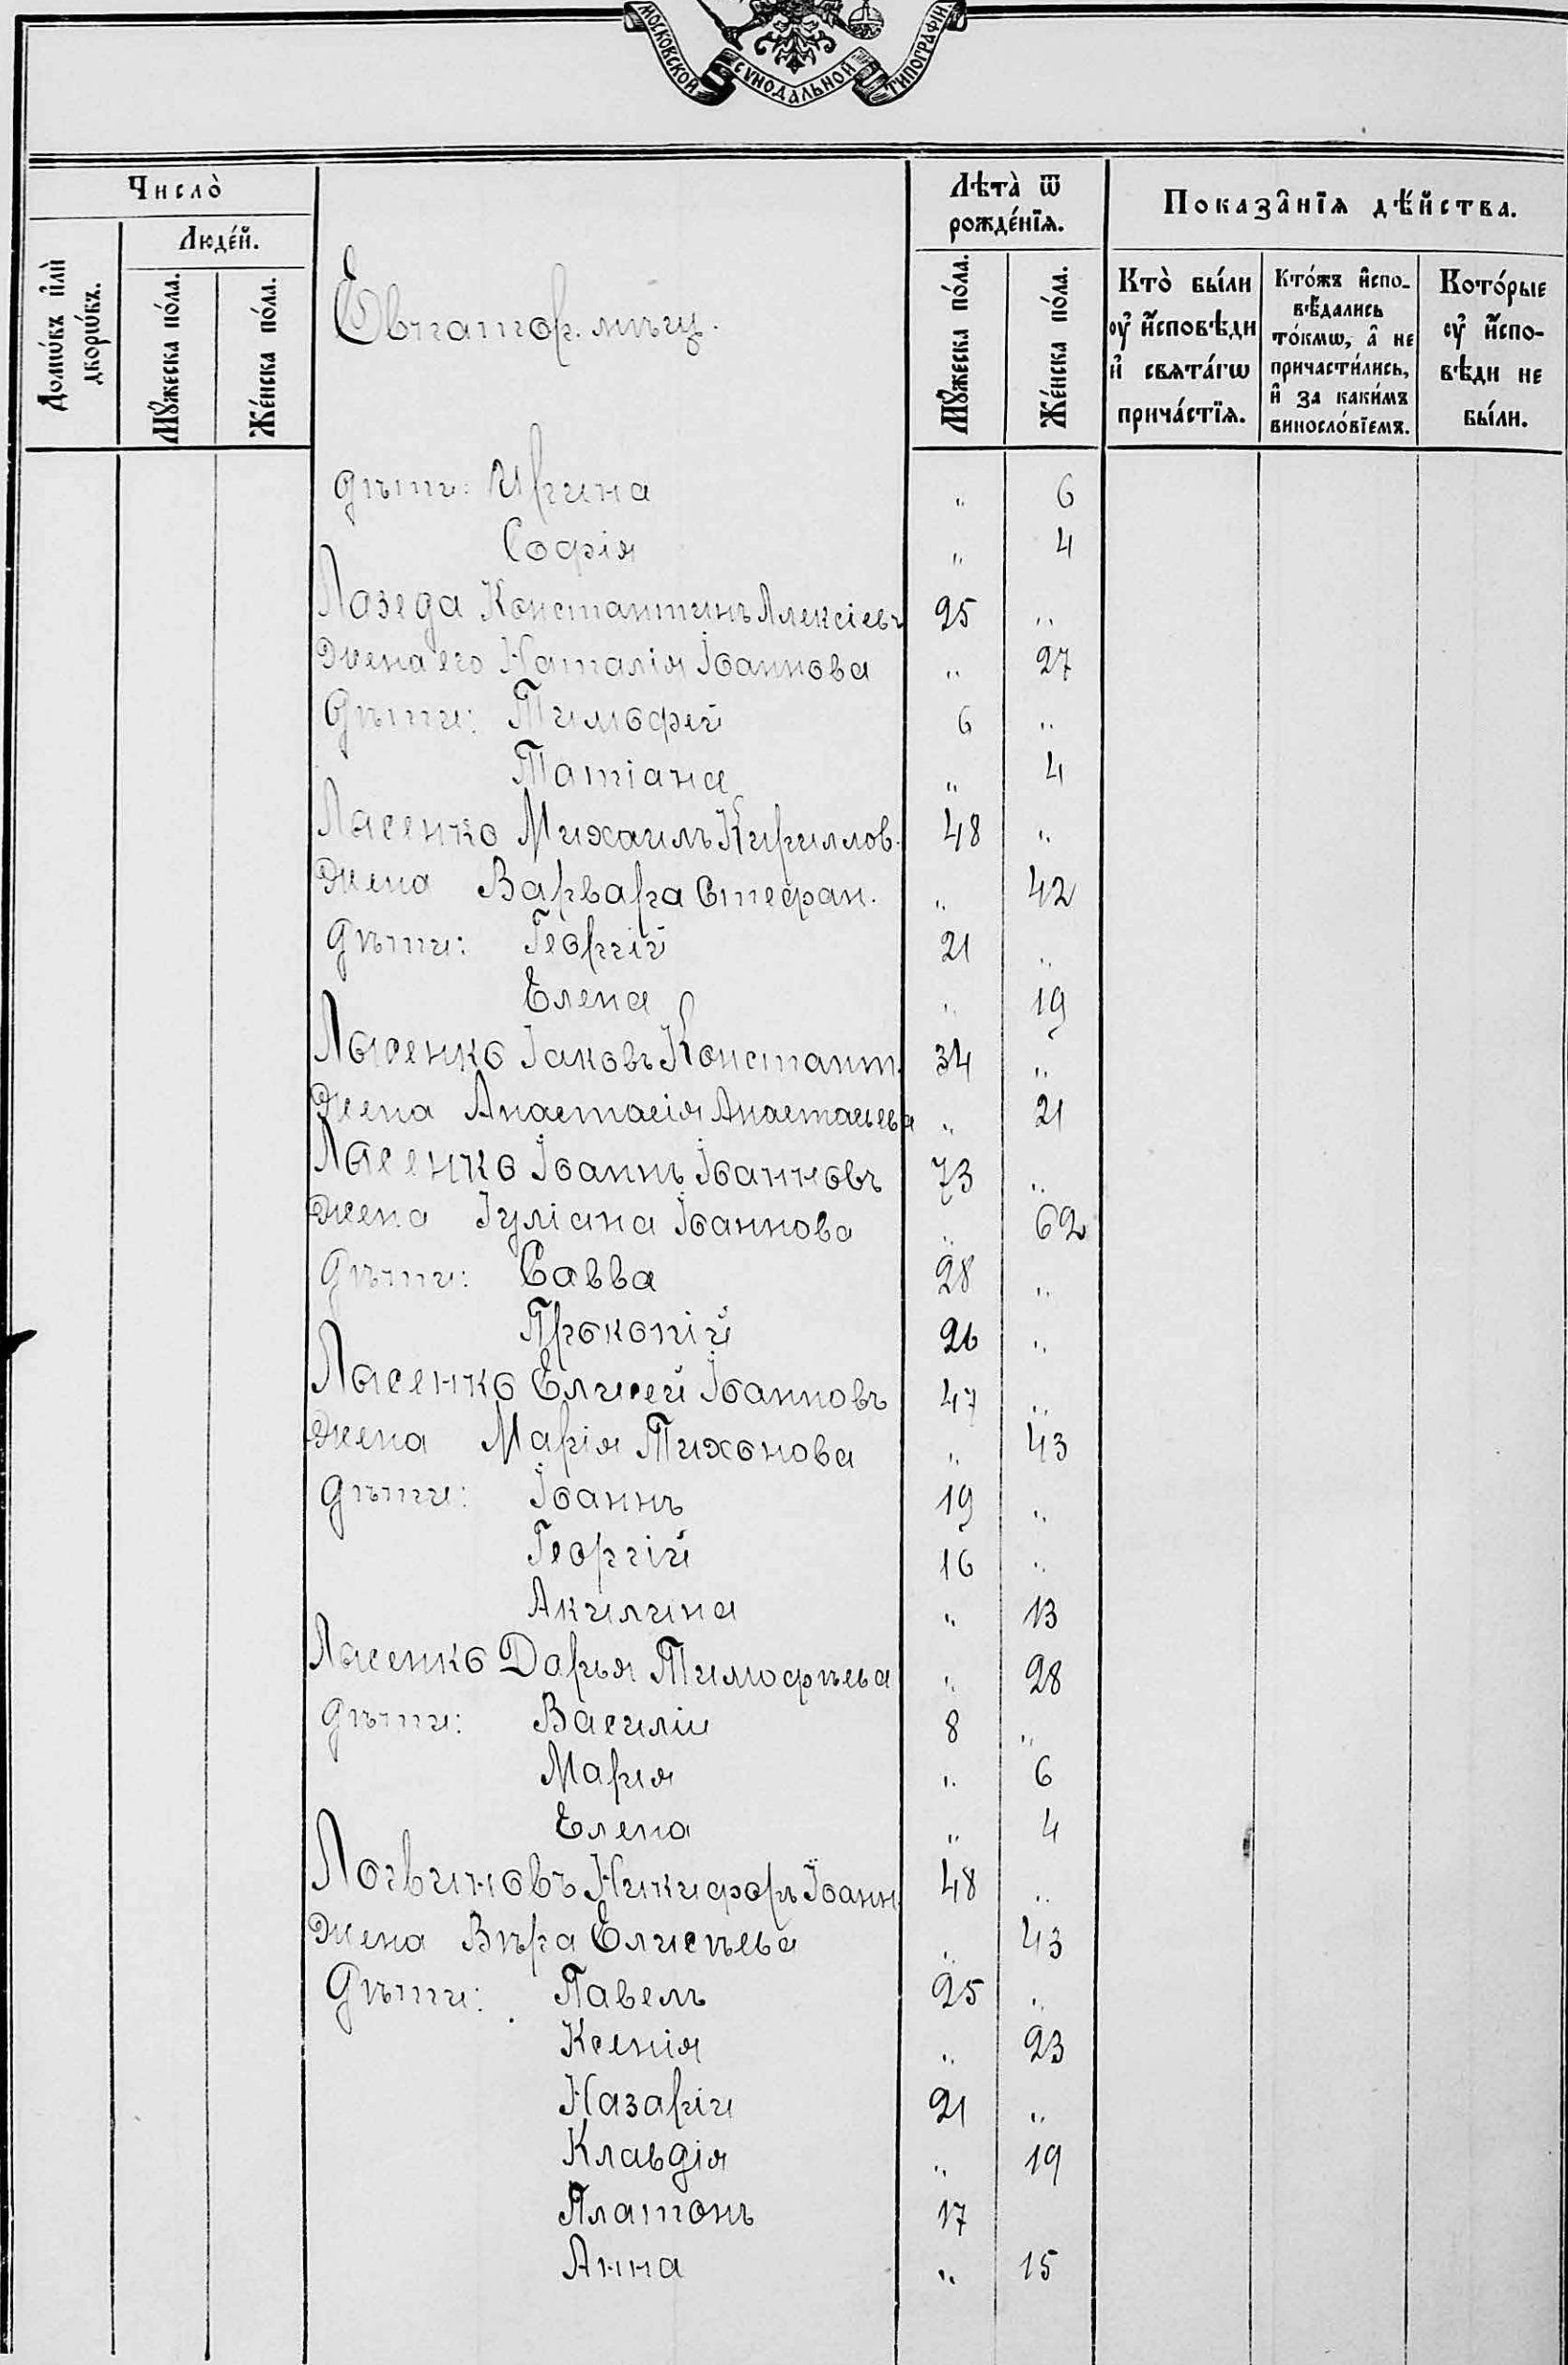 МОСКОВСКОЙ СѴНОДАЛЬНОЙ ТИПОГРАФІИ
Число̀
Людéй.
Домѡ́въ и҆лѝ дворѡ́въ.
Мꙋ́жеска по́ла.
Же́нска по́ла.
Евпатор. мѣщ.
Лѣта̀ ѿ рожде́нїѧ.
Мꙋ́жеска по́ла.
Же́нска по́ла.
Показа̑нїѧ дѣ́йства.
Кто̀ бы́ли оу҆ и҆́сповѣди и҆ свѧта́гѡ прича́стїѧ.
Кто́жъ и҆сповѣ́дались то́кмѡ, а҆ не причасти́лись, и҆ за каки́мъ виносло́вїемъ.
Кото́рые оу҆ и҆́сповѣди не бы́ли.
дѣти: Ирина „ 6
Софія „ 4
Лазеда Константинъ Алексіевъ 25 „
жена его Наталія Іоаннова „ 27
дѣти: Тимофей 6 „
Татіана „ 4
Лысенко Михаилъ Кириллов. 48 „
жена Варвара Стефан. „ 42
дѣти: Георгій 21 „
Елена „ 19
Лысенко Іаковъ Констант. 34 „
жена Анастасія Анастасьева „ 21
Лысенко Іоаннъ Іоанновъ 73 „
жена Іуліана Іоаннова „ 62
дѣти: Савва 28 „
Прокопій 26 „
Лысенко Елисей Іоанновъ 47 „
жена Марія Тихонова „ 43
дѣти: Іоаннъ 19 „
Георгій 16 „
Акилина „ 13
Лысенко Дарья Тимофѣева „ 28
дѣти: Василіи 8 „
Мария „ 6
Елена „ 4
Логвиновъ Никифоръ Іоанн. 48 „
жена Вѣра Елисѣева „ 43
дѣти: Павелъ 25 „
Ксенія „ 23
Назаріи 21 „
Клавдія „ 19
Платонъ 17
Анна „ 15